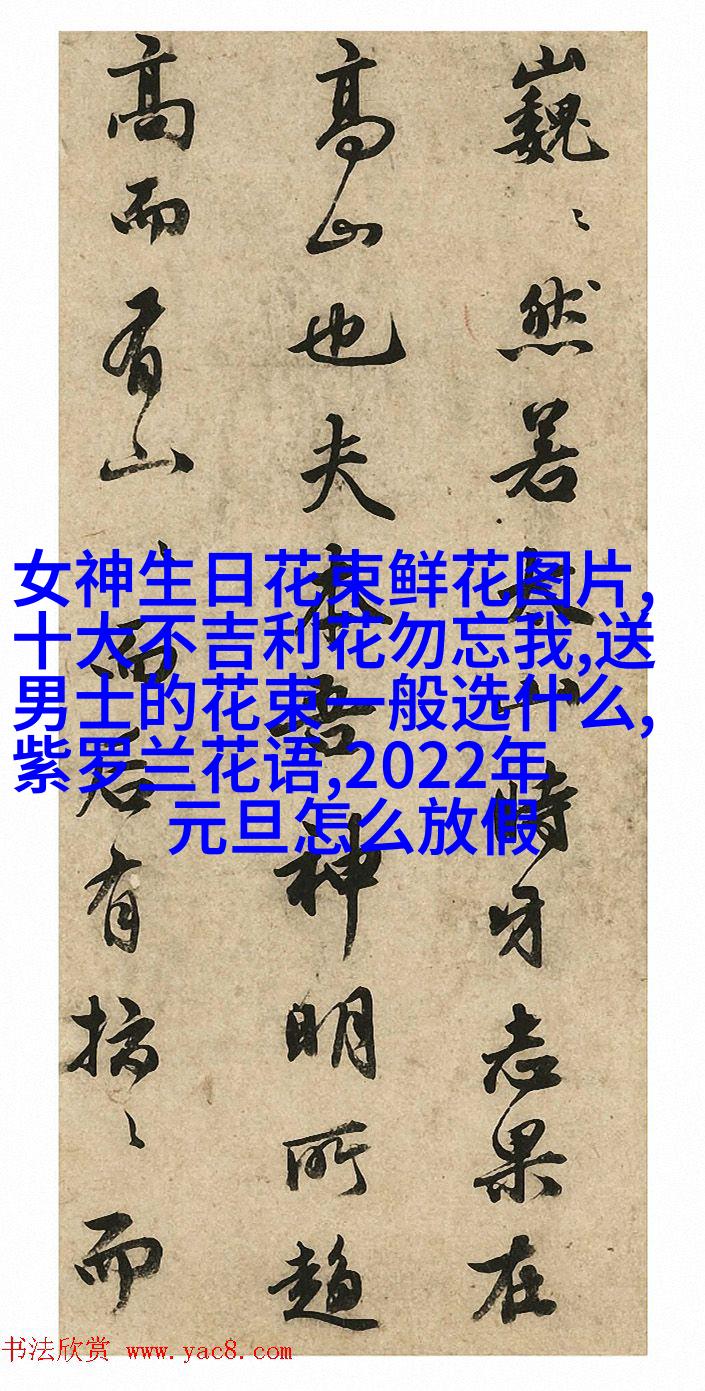 巍〻然若大山時牙志果在
高山也夫吾神明所趨
高而有山而若有而
女神生日花束鲜花图片,
十大不吉利花勿忘我,送
男士的花束一般选什么,
紫罗兰花语,2022年
元旦怎么放假
书法欣赏 www.yac8.com